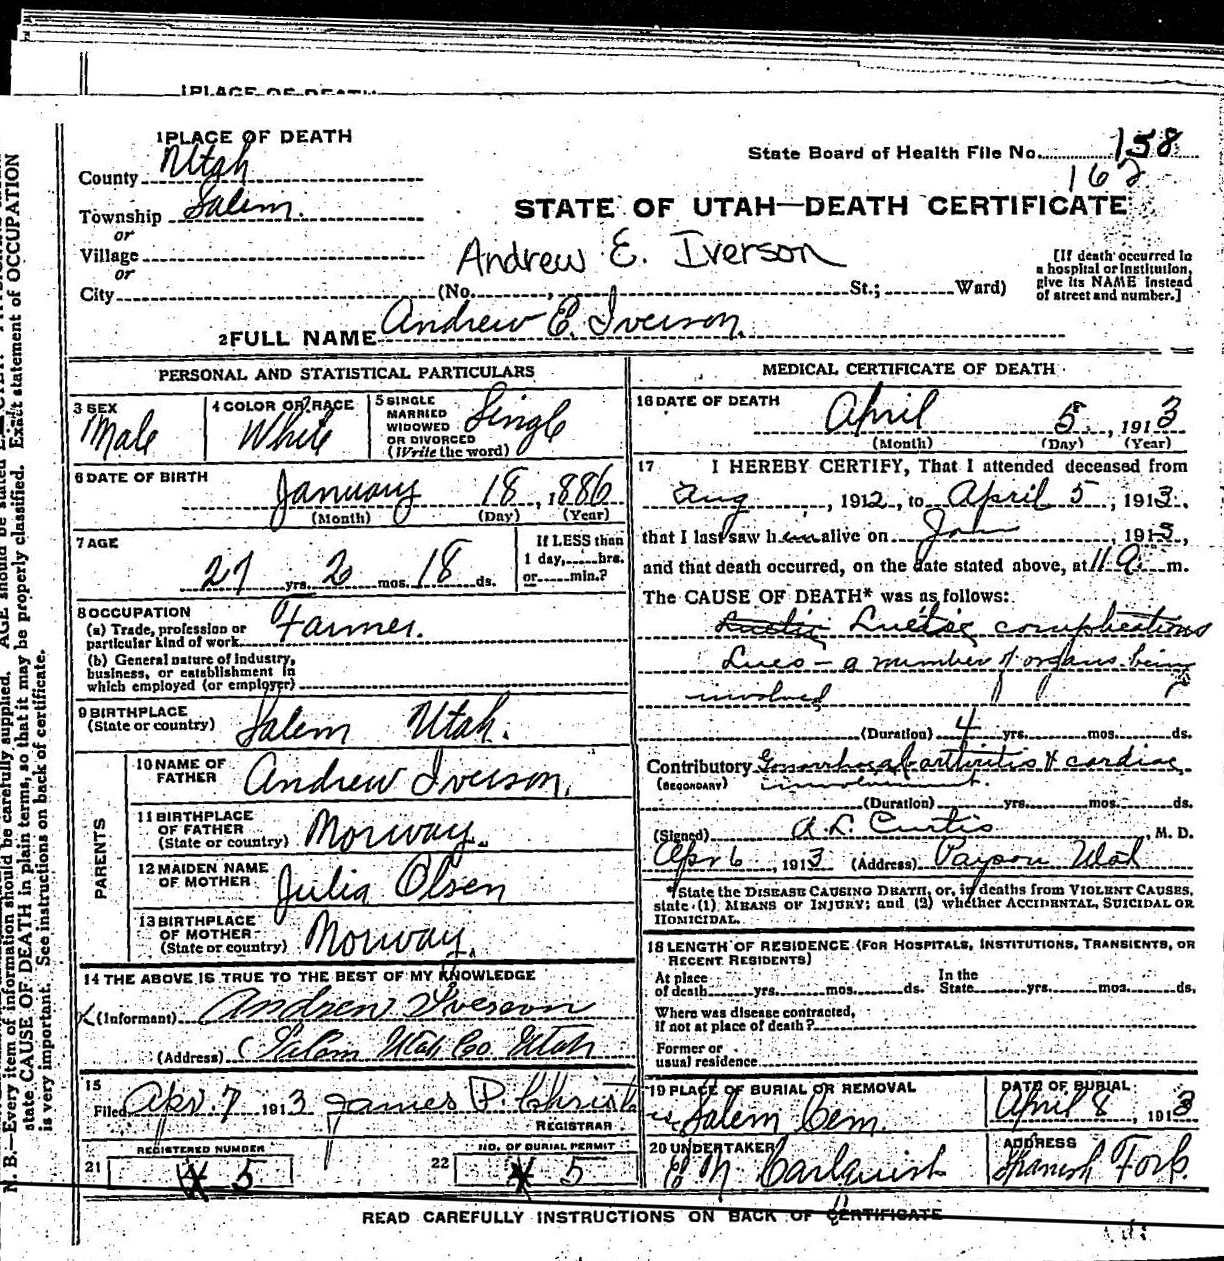 1 PLACE OF DEATH
1 PLACE OF DEATH
County Utah
State Board of Health File No. 158
162
Township Salem.
STATE OF UTAH—DEATH CERTIFICATE
or
Village
or
Andrew E. Iverson
[If death occurred in a hospital or institution, give its NAME instead of street and number.]
City (No. , St.; Ward)
2 FULL NAME Andrew E. Iverson.
PERSONAL AND STATISTICAL PARTICULARS
3 SEX Male
4 COLOR OR RACE White
5 SINGLE MARRIED WIDOWED OR DIVORCED (Write the word) Single
6 DATE OF BIRTH
January 18, 1886
(Month) (Day) (Year)
7 AGE
27 yrs. 2 mos. 18 ds.
If LESS than 1 day, hrs. or min.?
8 OCCUPATION
(a) Trade, profession or particular kind of work Farmer.
(b) General nature of industry, business, or establishment in which employed (or employer)
9 BIRTHPLACE
(State or country) Salem Utah.
PARENTS
10 NAME OF FATHER Andrew Iverson.
11 BIRTHPLACE OF FATHER (State or country) Norway.
12 MAIDEN NAME OF MOTHER Julia Olsen
13 BIRTHPLACE OF MOTHER (State or country) Norway.
14 THE ABOVE IS TRUE TO THE BEST OF MY KNOWLEDGE
(Informant) Andrew Iverson
(Address) Salem Utah Co. Utah
15
Filed Apr. 7 1913 James P Christ
REGISTRAR
21 REGISTERED NUMBER 5
22 NO. OF BURIAL PERMIT 5
MEDICAL CERTIFICATE OF DEATH
16 DATE OF DEATH
April 5, 1913
(Month) (Day) (Year)
17 I HEREBY CERTIFY, That I attended deceased from
Aug, 1912, to April 5, 1913.,
that I last saw him alive on Jan 1913,
and that death occurred, on the date stated above, at 11 a. m.
The CAUSE OF DEATH* was as follows:
Luetic Luetic complications
Lues - a number of organs being
involved
(Duration) 4 yrs. mos. ds.
Contributory Gonorrhoeal arthritis & cardiac
(SECONDARY) involvement.
(Duration) yrs. mos. ds.
(Signed) A. L. Curtis, M. D.
Apr 6, 1913 (Address) Payson Utah
*State the DISEASE CAUSING DEATH, or, in deaths from VIOLENT CAUSES,
state (1) MEANS OF INJURY; and (2) whether ACCIDENTAL, SUICIDAL OR
HOMICIDAL.
18 LENGTH OF RESIDENCE (FOR HOSPITALS, INSTITUTIONS, TRANSIENTS, OR
RECENT RESIDENTS)
At place of death yrs. mos. ds. In the State yrs. mos. ds.
Where was disease contracted,
if not at place of death?
Former or
usual residence
19 PLACE OF BURIAL OR REMOVAL
Salem Cem.
DATE OF BURIAL
April 8, 1913
20 UNDERTAKER
Carlquist
ADDRESS
Spanish Fork.
READ CAREFULLY INSTRUCTIONS ON BACK OF CERTIFICATE
N. B.—Every item of information should be carefully supplied. AGE should be stated
state CAUSE OF DEATH in plain terms, so that it may be properly classified. Exact statement of OCCUPATION
is very important. See instructions on back of certificate.